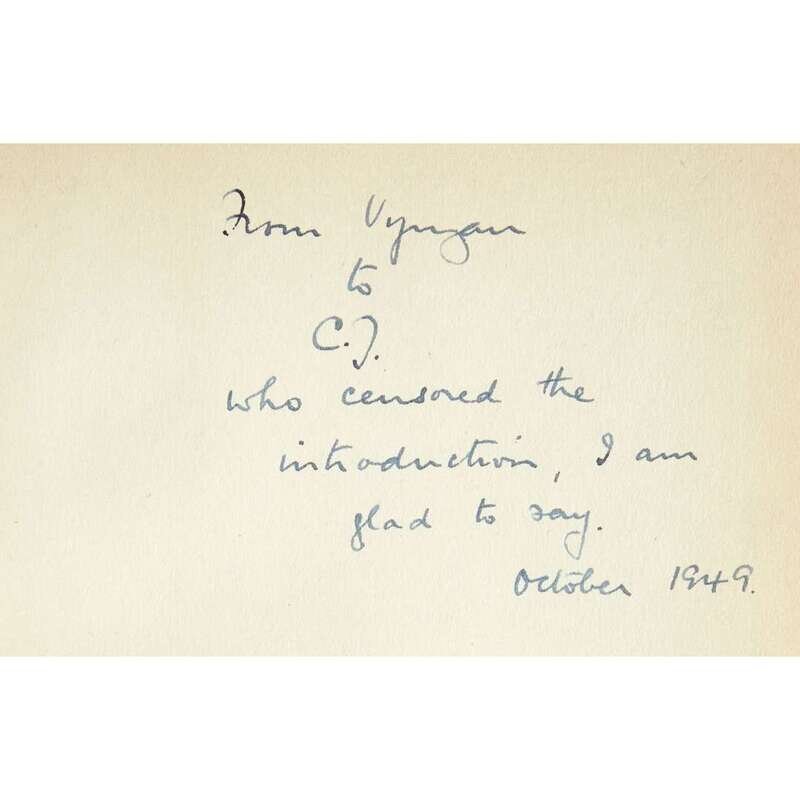 From Vyvyan
to
C.J.
who censored the
introduction, I am
glad to say.
October 1949.